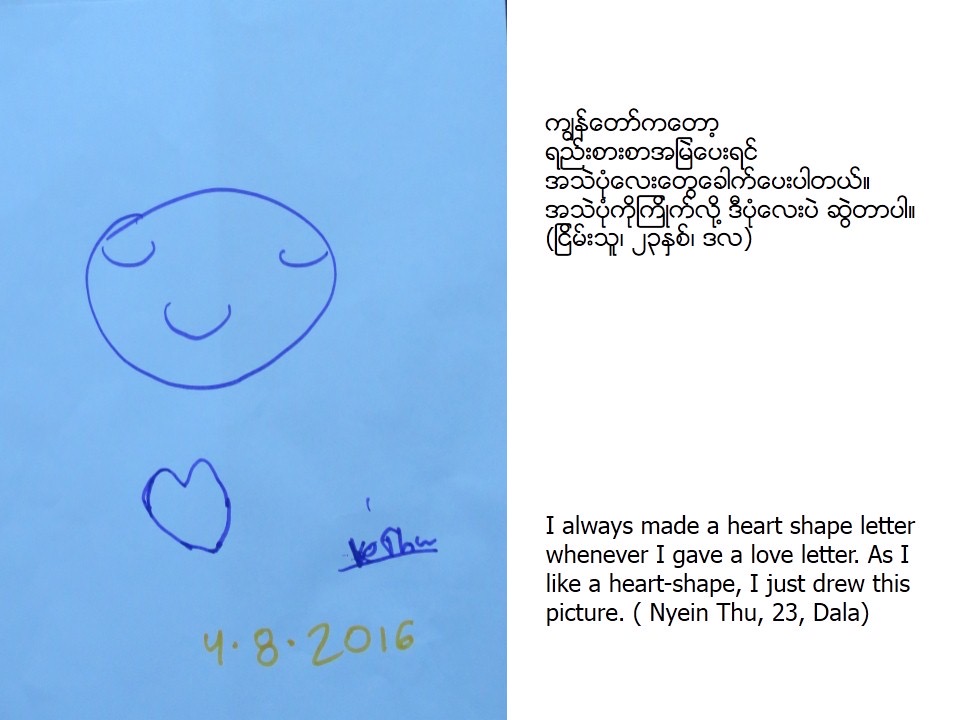 4.8.2016
ကျွန်တော်ကတော့
ရည်းစားစာအမြဲပေးရင်
အသဲပုံလေးတွေခေါက်ပေးပါတယ်။
အသဲပုံကိုကြိုက်လို့ ဒီပုံလေးပဲ ဆွဲတာပါ။
(ငြိမ်းသူ၊ ၂၃နှစ်၊ ဒလ)
I always made a heart shape letter
whenever I gave a love letter. As I
like a heart-shape, I just drew this
picture. ( Nyein Thu, 23, Dala)